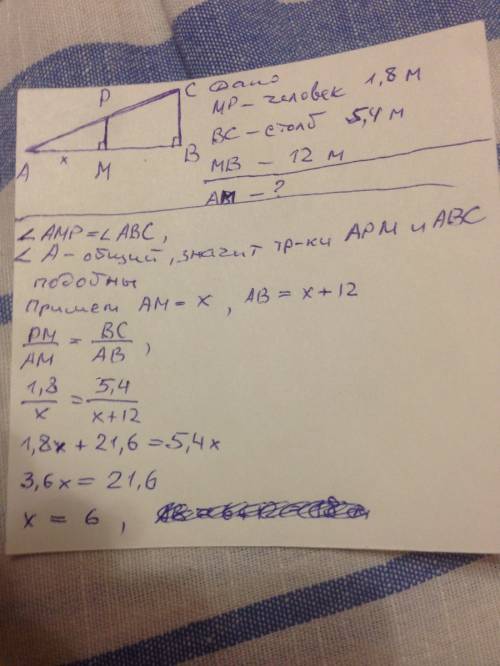 P
C
A
x
M
B
Дано
MP – человек 1,8 м
BC – столб 5,4 м
MB – 12 м
AM – ?
∠AMP = ∠ABC,
∠A – общий, значит тр-ки APM и ABC
подобны
Примем AM = x, AB = x + 12
PM/AM = BC/AB,
1,8/x = 5,4/(x+12)
1,8x + 21,6 = 5,4x
3,6x = 21,6
x = 6,